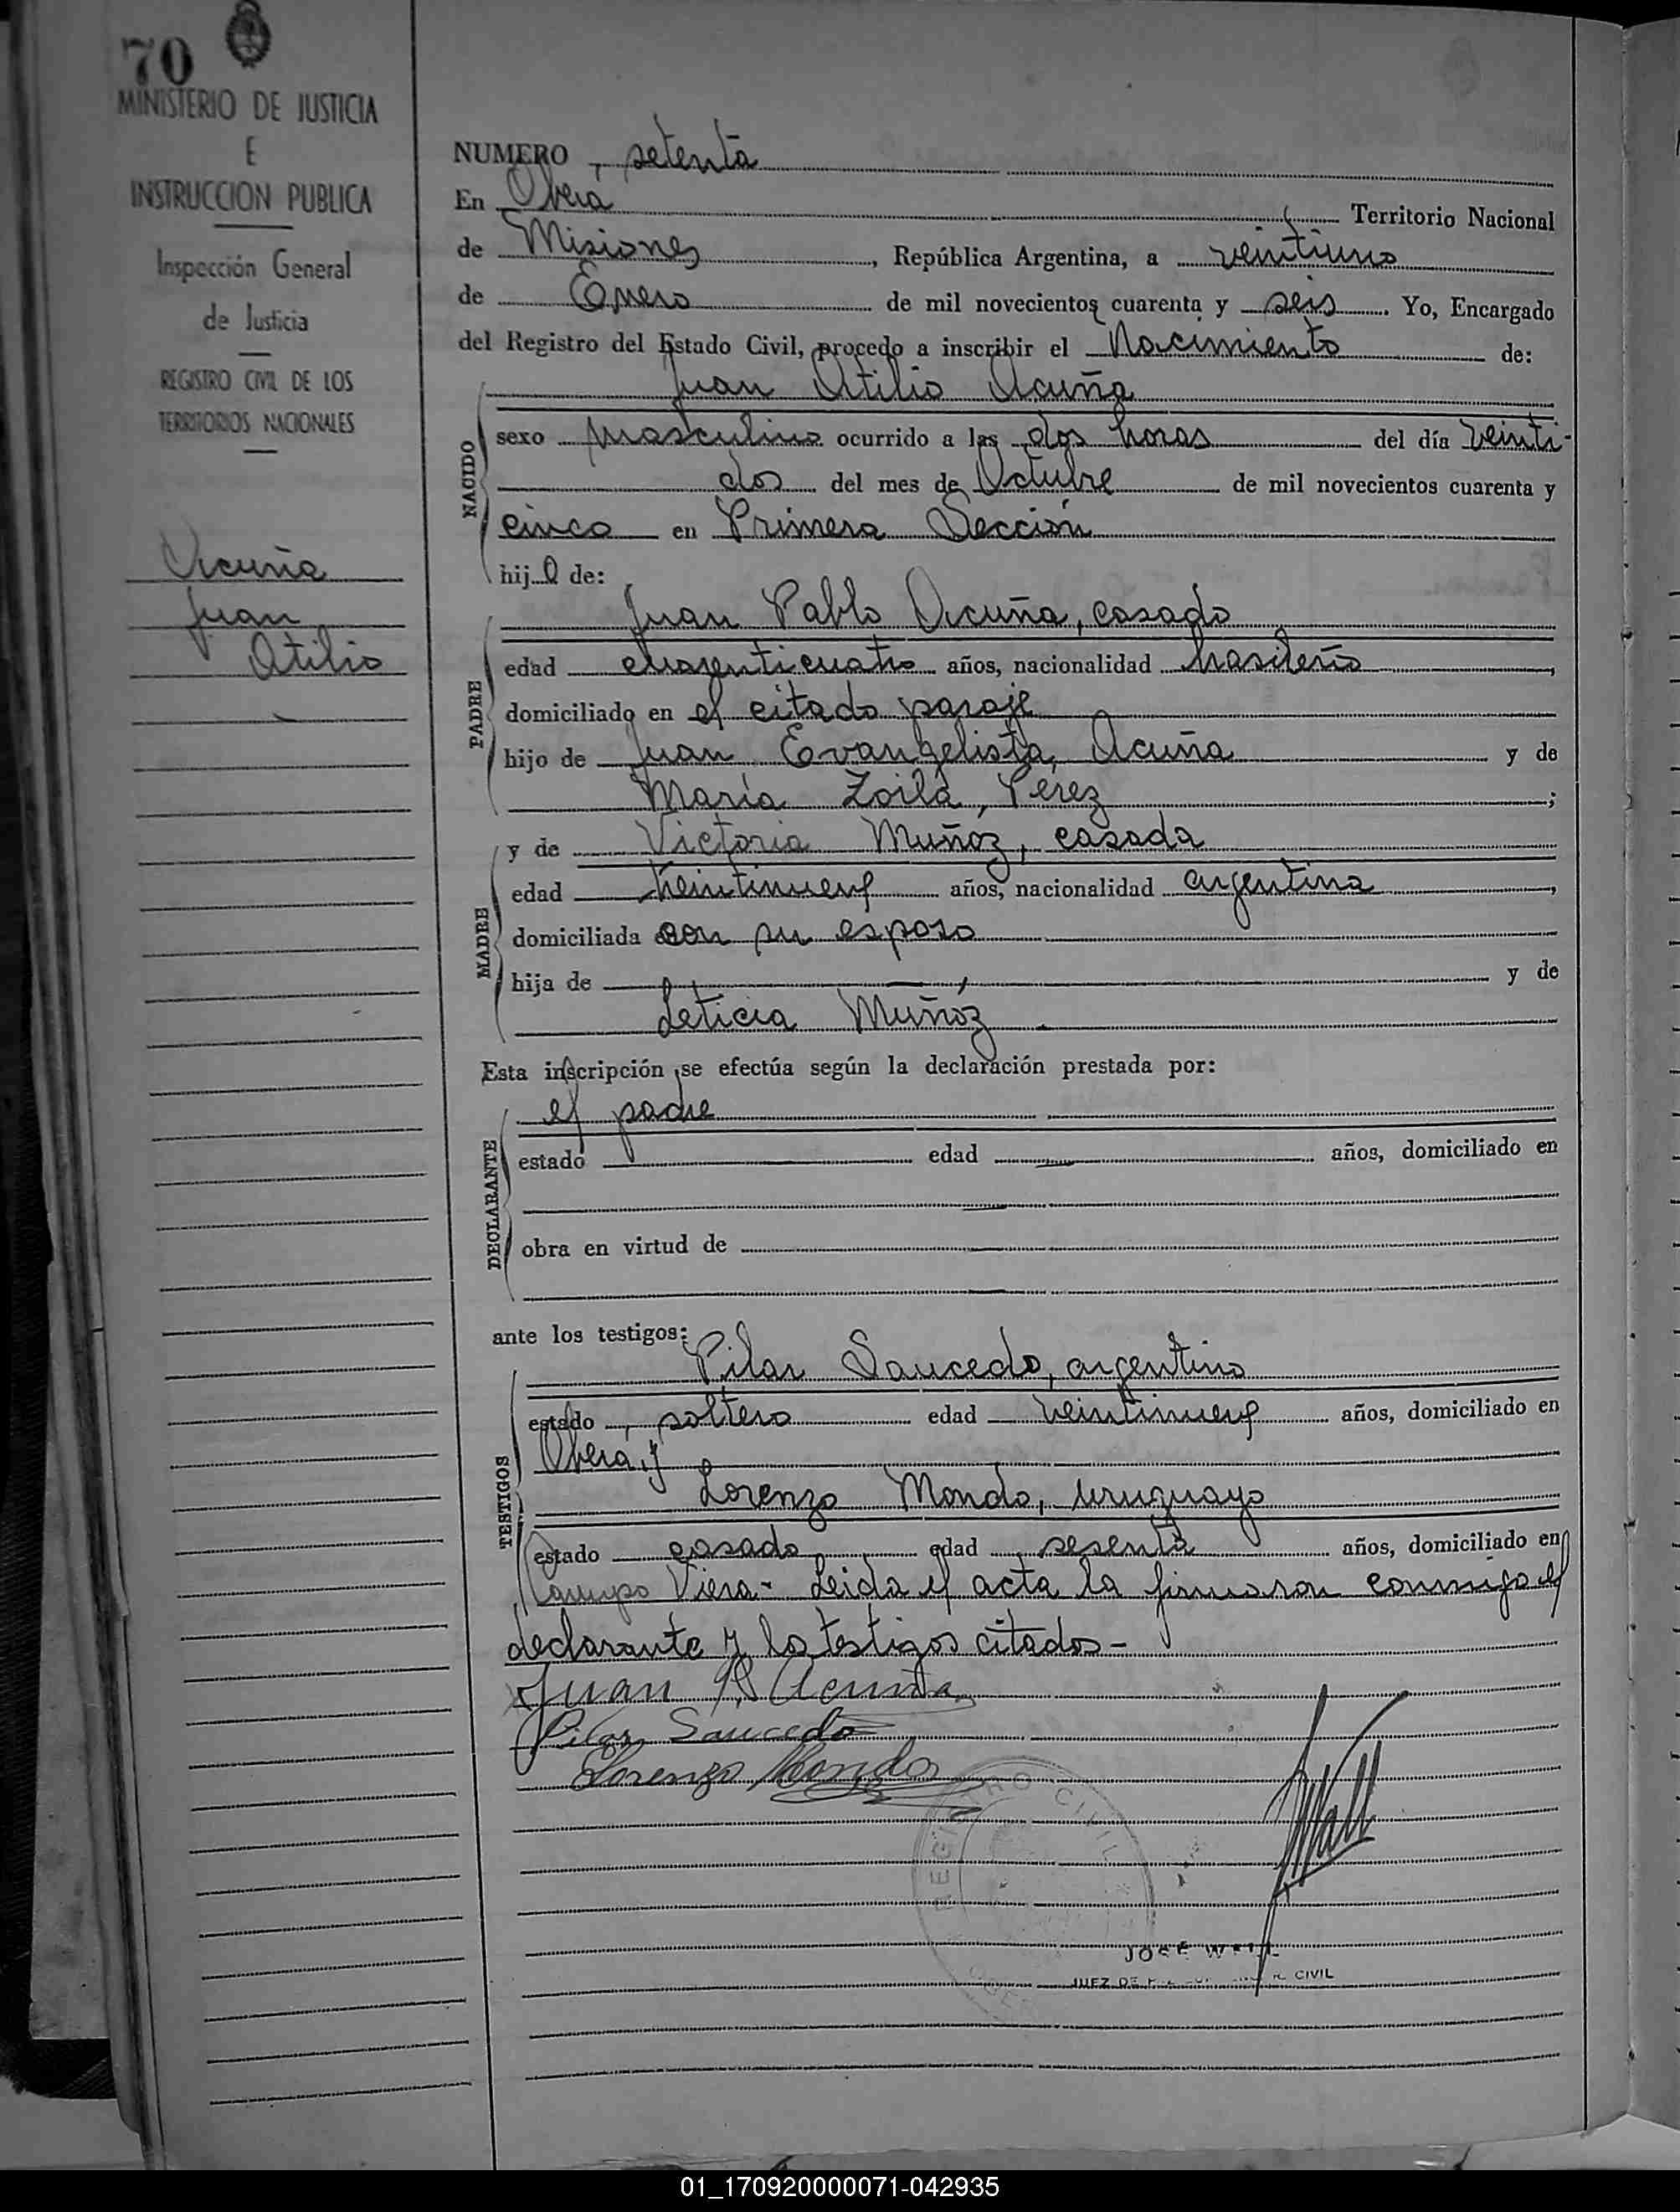 70
MINISTERIO DE JUSTICIA
E
INSTRUCCION PUBLICA
Inspección General
de Justicia
REGISTRO CIVIL DE LOS
TERRITORIOS NACIONALES
Acuña
Juan
Atilio
NUMERO, setenta
En Oberá Territorio Nacional
de Misiones, República Argentina, a veintiuno
de Enero de mil novecientos cuarenta y seis. Yo, Encargado
del Registro del Estado Civil, procedo a inscribir el Nacimiento de:
Juan Atilio Acuña
NACIDO
sexo masculino ocurrido a las dos horas del día veinti-
dos del mes de Octubre de mil novecientos cuarenta y
cinco en Primera Sección
hijo de:
Juan Pablo Acuña, casado
PADRE
edad cuarenticuatro años, nacionalidad brasileño,
domiciliado en el citado paraje
hijo de Juan Evangelista Acuña y de
María Zoila Perez;
y de Victoria Muñóz, casada
MADRE
edad años, nacionalidad argentina,
domiciliada con su esposo
hija de y de
Leticia Muñóz
Esta inscripción se efectúa según la declaración prestada por:
el padre
DECLARANTE
estado edad años, domiciliado en
obra en virtud de
ante los testigos:
Pilar Saucedo, argentino
TESTIGOS
estado, soltero edad veintinueve años, domiciliado en
Oberá, y
Lorenzo Mondo, uruguayo
estado casado, edad, sesenta años, domiciliado en
Campo Viera- Leida el acta la firmaron conmigo el
declarante y los testigos citados-
Juan P. Acuña
Pilar Saucedo
Lorenzo Mondo
REGISTRO CIVIL
JOSÉ
JUEZ DE CIVIL
01_170920000071-042935